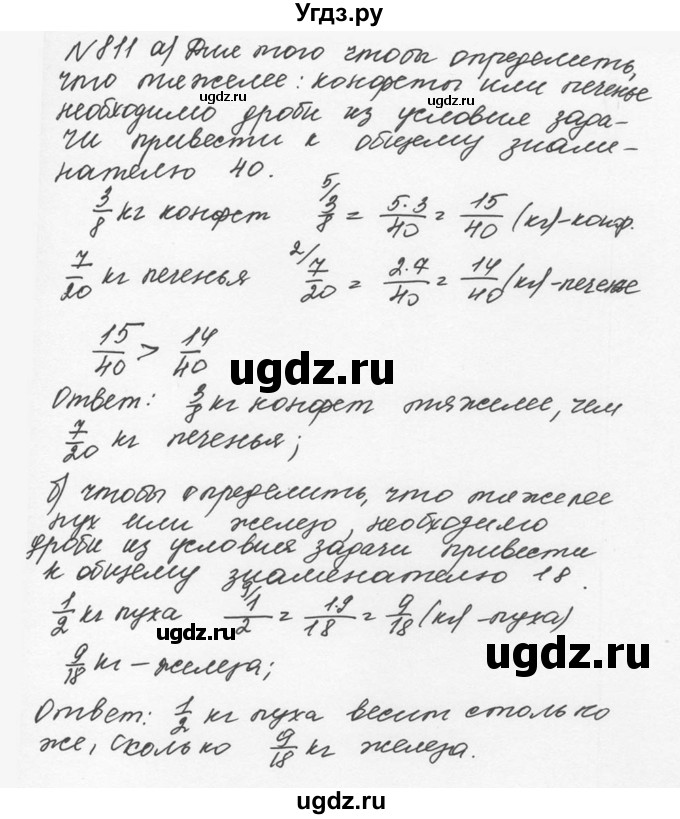 Угдз.ру
N811 а) Для того чтобы определить,
что тяжелее: конфеты или печенье
необходимо дроби из условия зада-
чи привести к общему знаме-
нателю 40.
3/8 кг конфет 5/ 3/8 = 5·3/40 = 15/40 (кг)-конф.
7/20 кг печенья 2/ 7/20 = 2·7/40 = 14/40 (кг)-печенье
15/40 > 14/40
Ответ: 3/8 кг конфет тяжелее, чем
7/20 кг печенья;
б) чтобы определить, что тяжелее
пух или железо, необходимо
дроби из условия задачи привести
к общему знаменателю 18.
1/2 кг пуха 9/ 1/2 = 1·9/18 = 9/18 (кг)-пуха)
9/18 кг - железа;
Ответ: 1/2 кг пуха весит столько
же, сколько 9/18 кг железа.
ugdz.ru
ugdz.ru
ugdz.ru
ugdz.ru
ugdz.ru
ugdz.ru
ugdz.ru